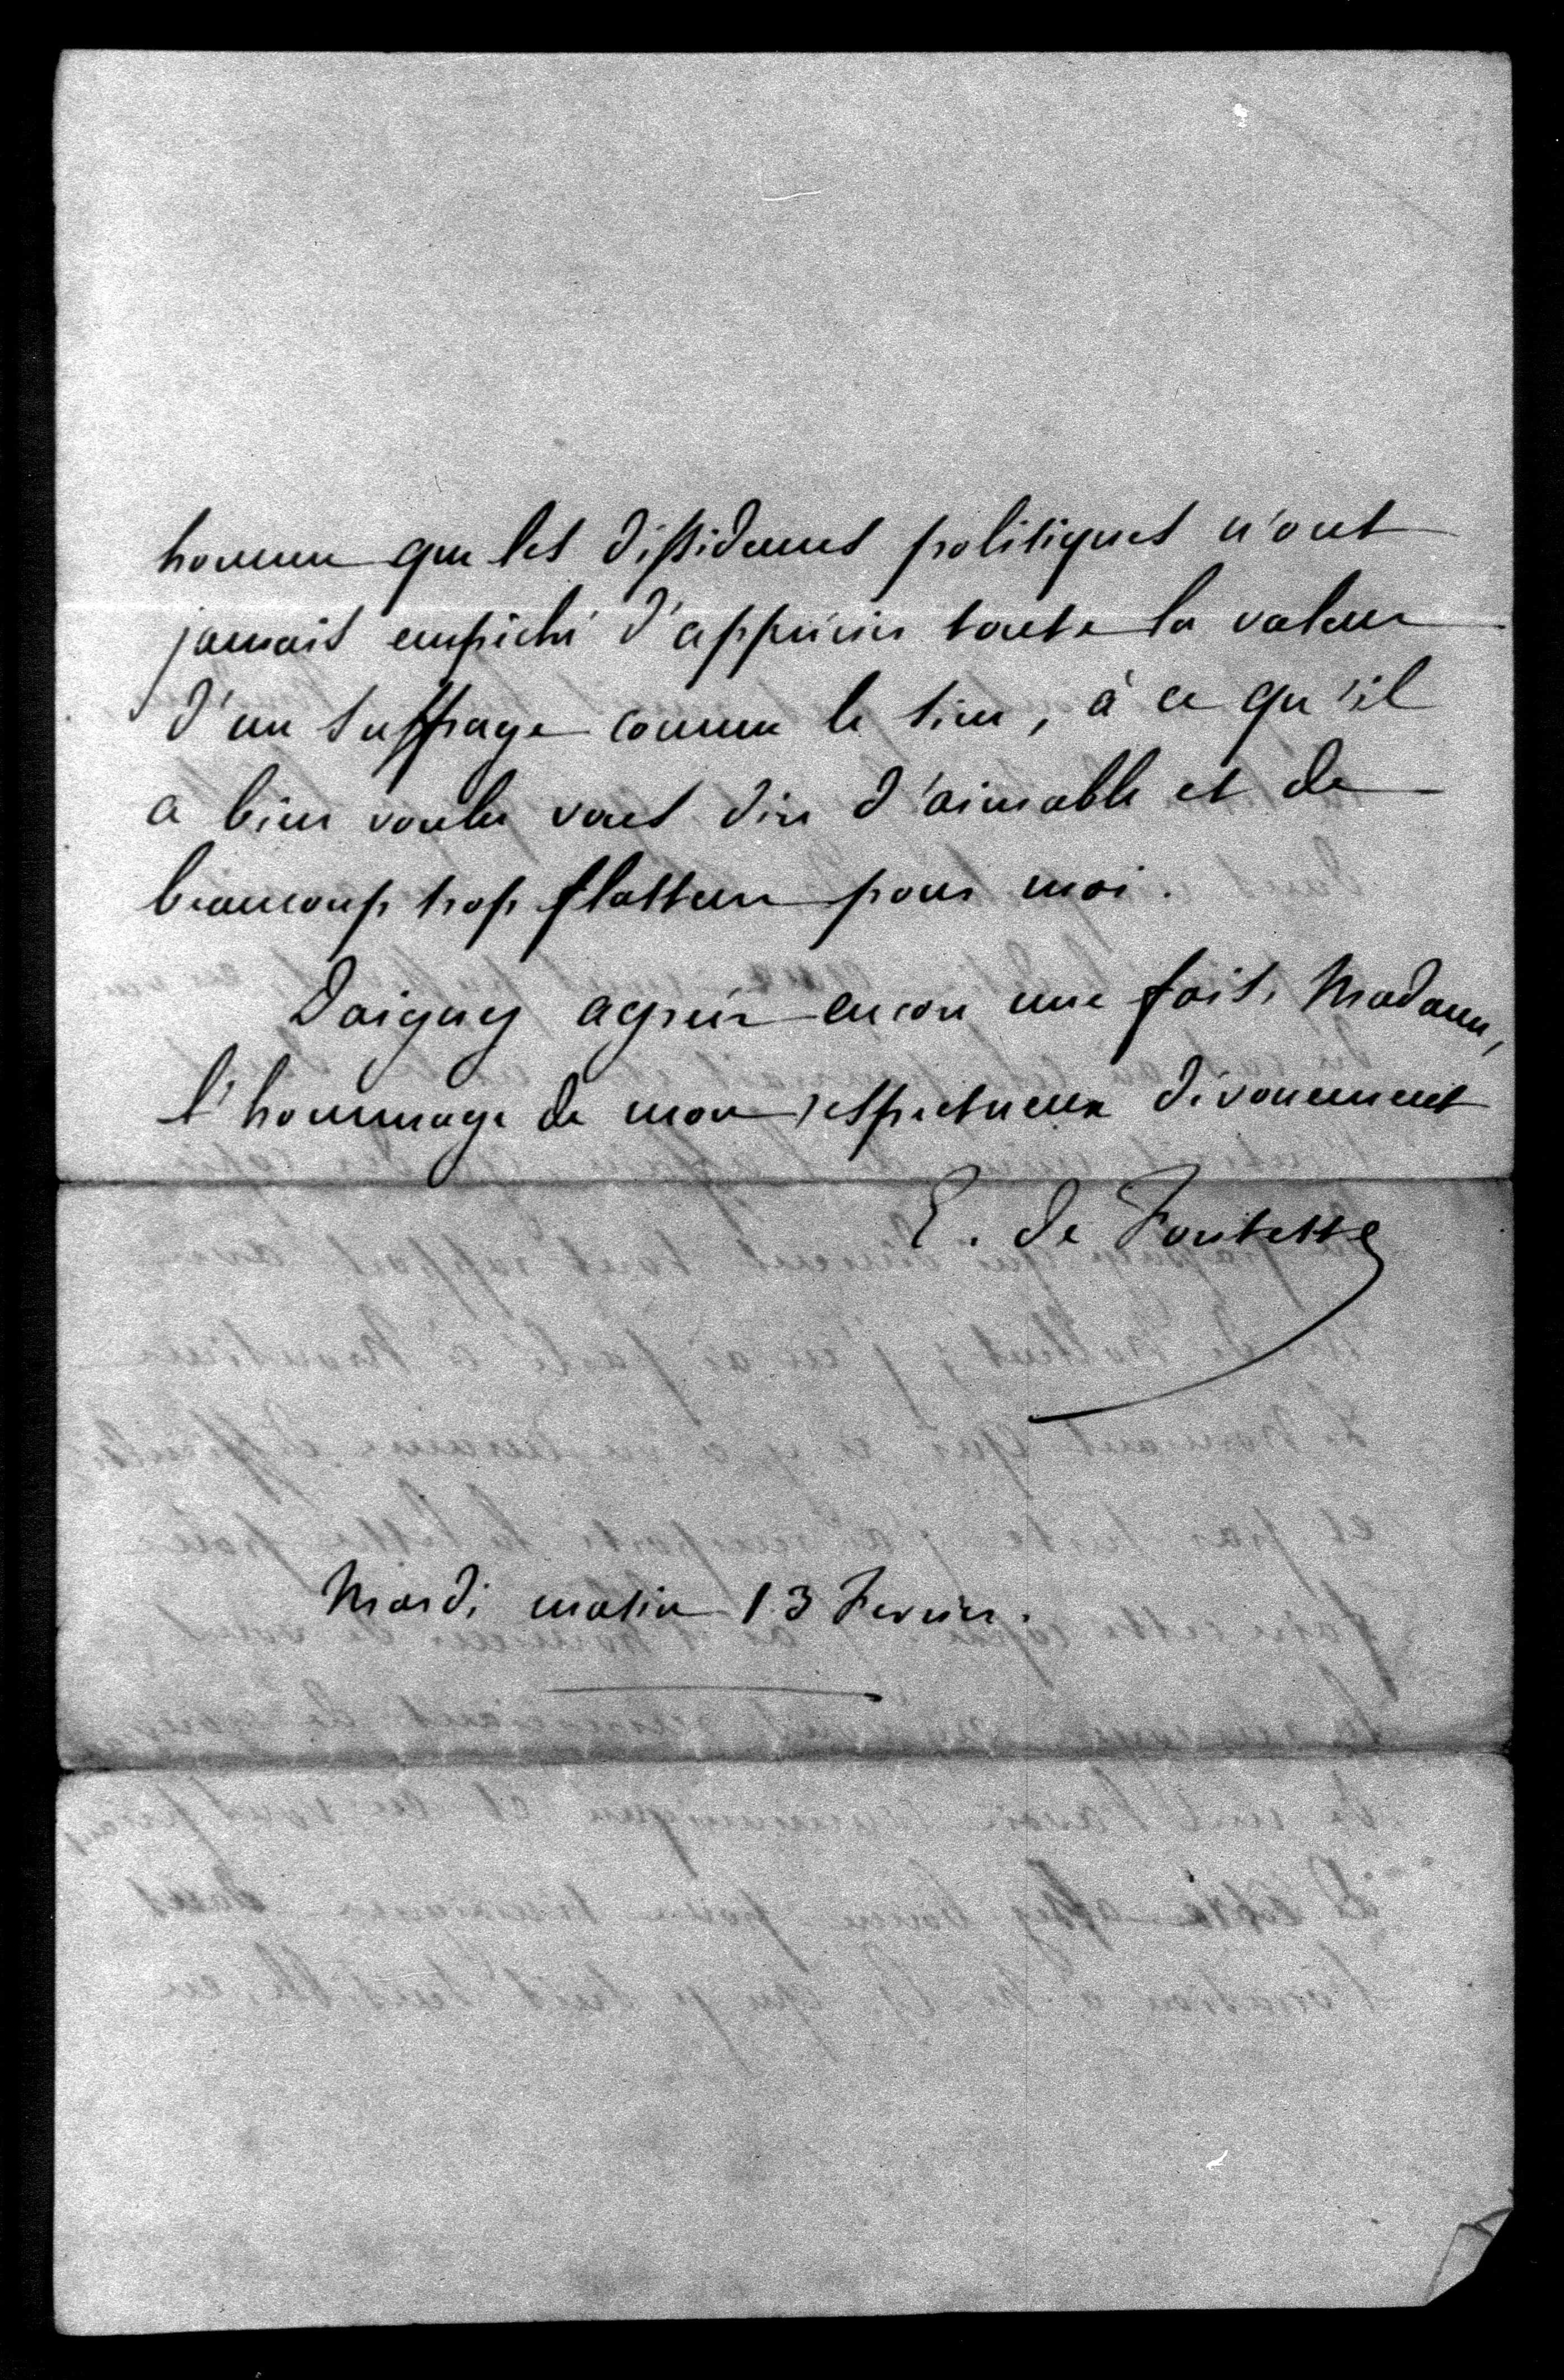 homme que les dissidences politiques n'ont
jamais empêché d'apprécier toute la valeur
d'un suffrage comme le sien, à ce qu'il
a bien voulu vous dire d'aimable et de
beaucoup trop flatteur pour moi.
Daignez agréer encore une fois, Madame,
l'hommage de mon respectueux dévouement
E. de Fontette
Mardi matin 13 Fevrier.